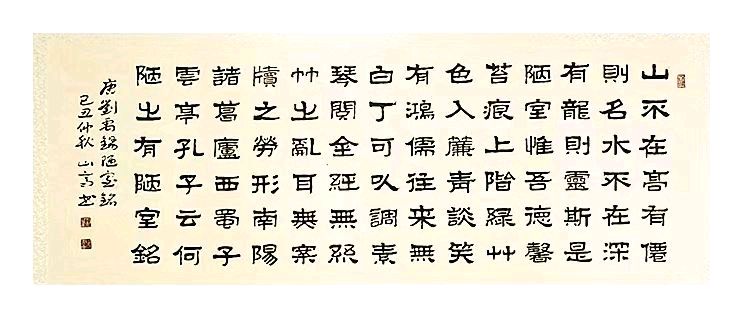 山不在高有僊
則名水不在深
有龍則靈斯是
陋室惟吾德馨
苔痕上階綠艸
色入簾青談笑
有鴻儒往來無
白丁可以調素
琴閱金經無絲
竹之亂耳無案
牘之勞形南陽
諸葛廬西蜀子
雲亭孔子云何
陋之有陋室銘
唐劉禹錫陋室銘
己丑仲秋山高书